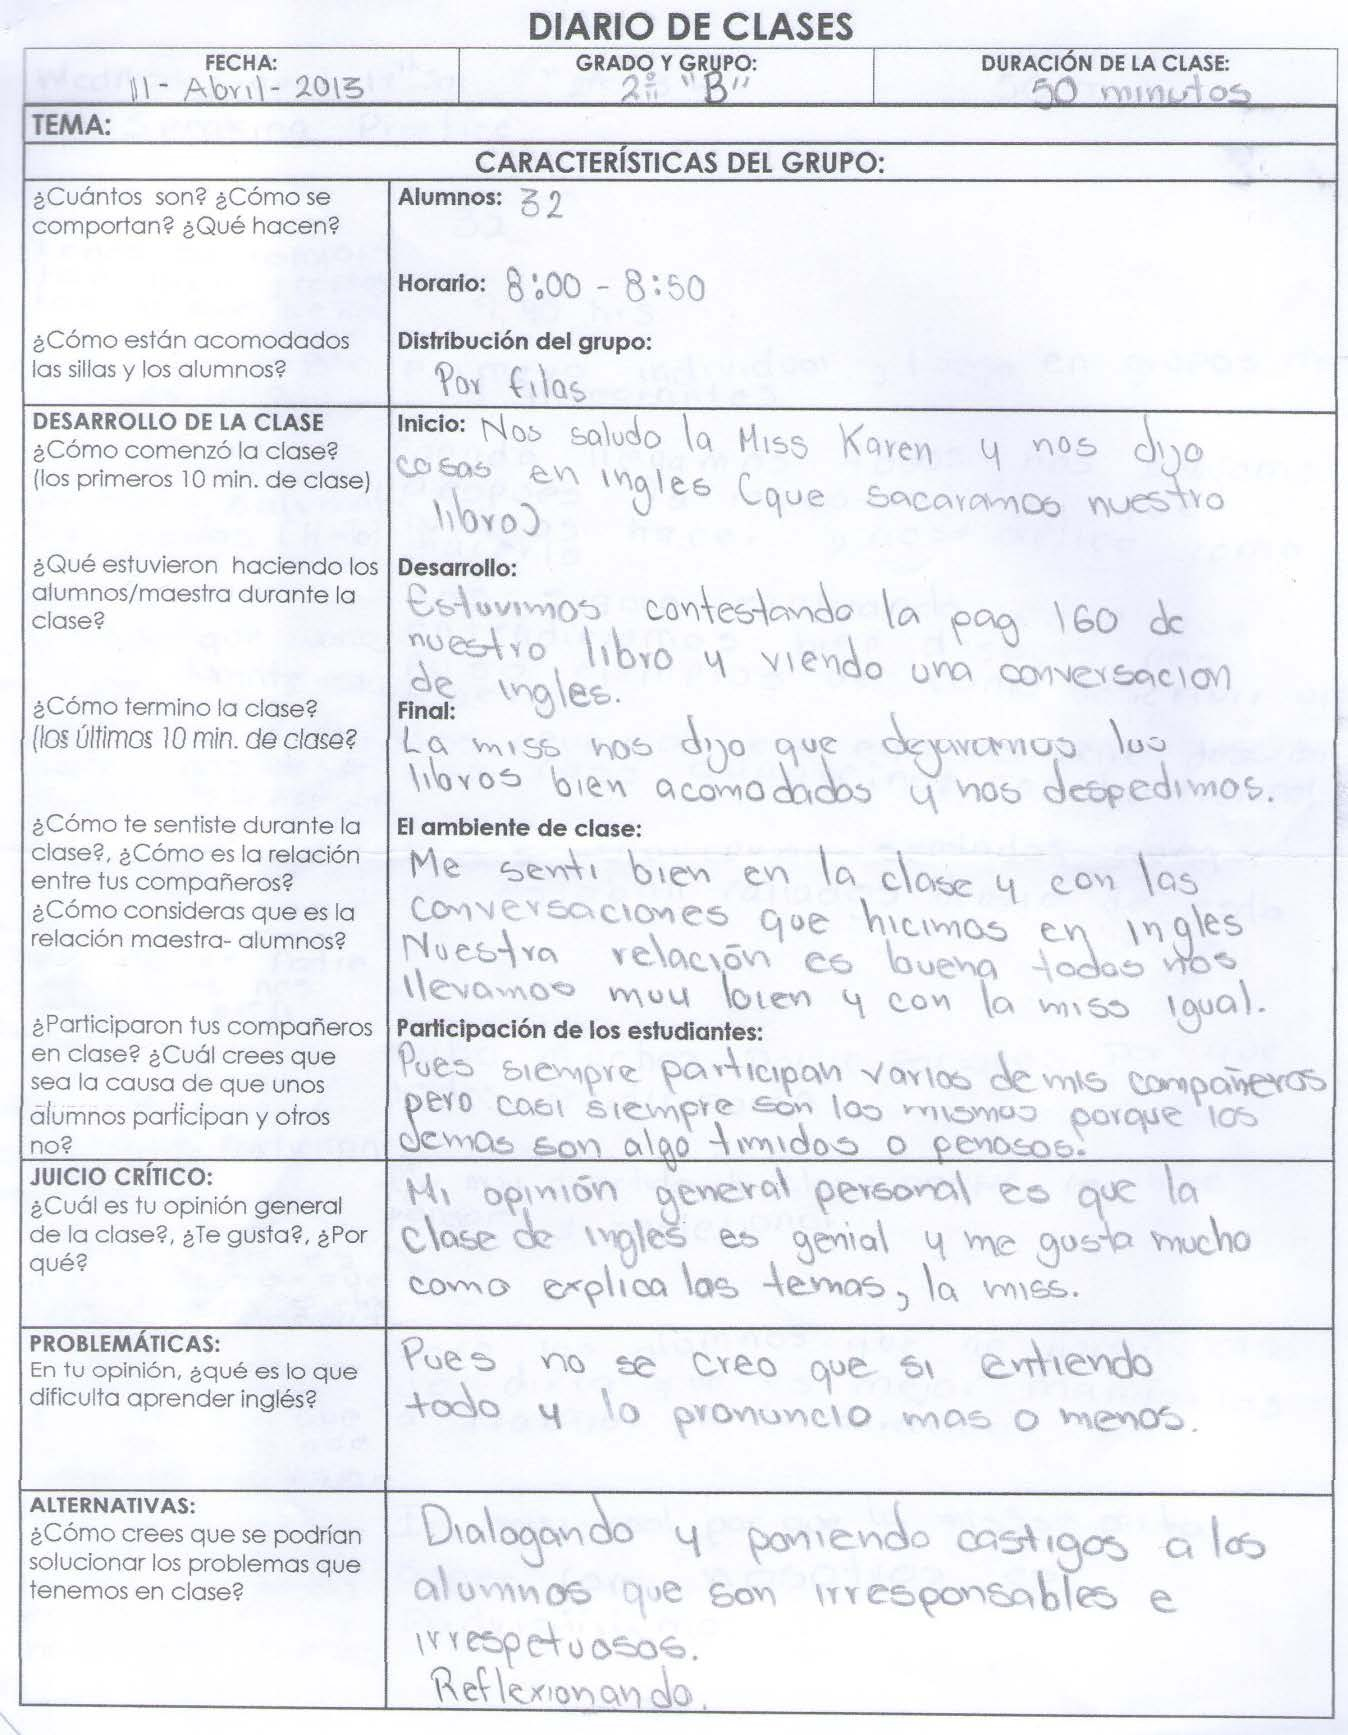 DIARIO DE CLASES
FECHA:
11 - Abril - 2013
GRADO Y GRUPO:
2º "B"
DURACIÓN DE LA CLASE:
50 minutos
TEMA:
CARACTERÍSTICAS DEL GRUPO:
¿Cuántos son? ¿Cómo se
comportan? ¿Qué hacen?
Alumnos: 32
Horario: 8:00 - 8:50
¿Cómo están acomodados
las sillas y los alumnos?
Distribución del grupo:
Por filas
DESARROLLO DE LA CLASE
¿Cómo comenzó la clase?
(los primeros 10 min. de clase)
Inicio: Nos saludo la Miss Karen y nos dijo
cosas en ingles (que sacaramos nuestro
libro)
¿Qué estuvieron haciendo los
alumnos/maestra durante la
clase?
Desarrollo:
Estuvimos contestando la pag 160 de
nuestro libro y viendo una conversacion
de ingles.
¿Cómo termino la clase?
(los últimos 10 min. de clase?
Final:
La miss nos dijo que dejaramos los
libros bien acomodados y nos despedimos.
¿Cómo te sentiste durante la
clase?, ¿Cómo es la relación
entre tus compañeros?
¿Cómo consideras que es la
relación maestra- alumnos?
El ambiente de clase:
Me senti bien en la clase y con las
conversaciones que hicimos en ingles
Nuestra relación es buena todos nos
llevamos muy bien y con la miss igual.
¿Participaron tus compañeros
en clase? ¿Cuál crees que
sea la causa de que unos
alumnos participan y otros
no?
Participación de los estudiantes:
Pues siempre participan varios de mis compañeros
pero casi siempre son los mismos porque los
demas son algo timidos o penosos.
JUICIO CRÍTICO:
¿Cuál es tu opinión general
de la clase?, ¿Te gusta?, ¿Por
qué?
Mi opinión general personal es que la
clase de ingles es genial y me gusta mucho
como explica los temas, la miss.
PROBLEMÁTICAS:
En tu opinión, ¿qué es lo que
dificulta aprender inglés?
Pues no se creo que si entiendo
todo y lo pronuncio mas o menos.
ALTERNATIVAS:
¿Cómo crees que se podrían
solucionar los problemas que
tenemos en clase?
Dialogando y poniendo castigos a los
alumnos que son irresponsables e
irrespetuosos.
Reflexionando.